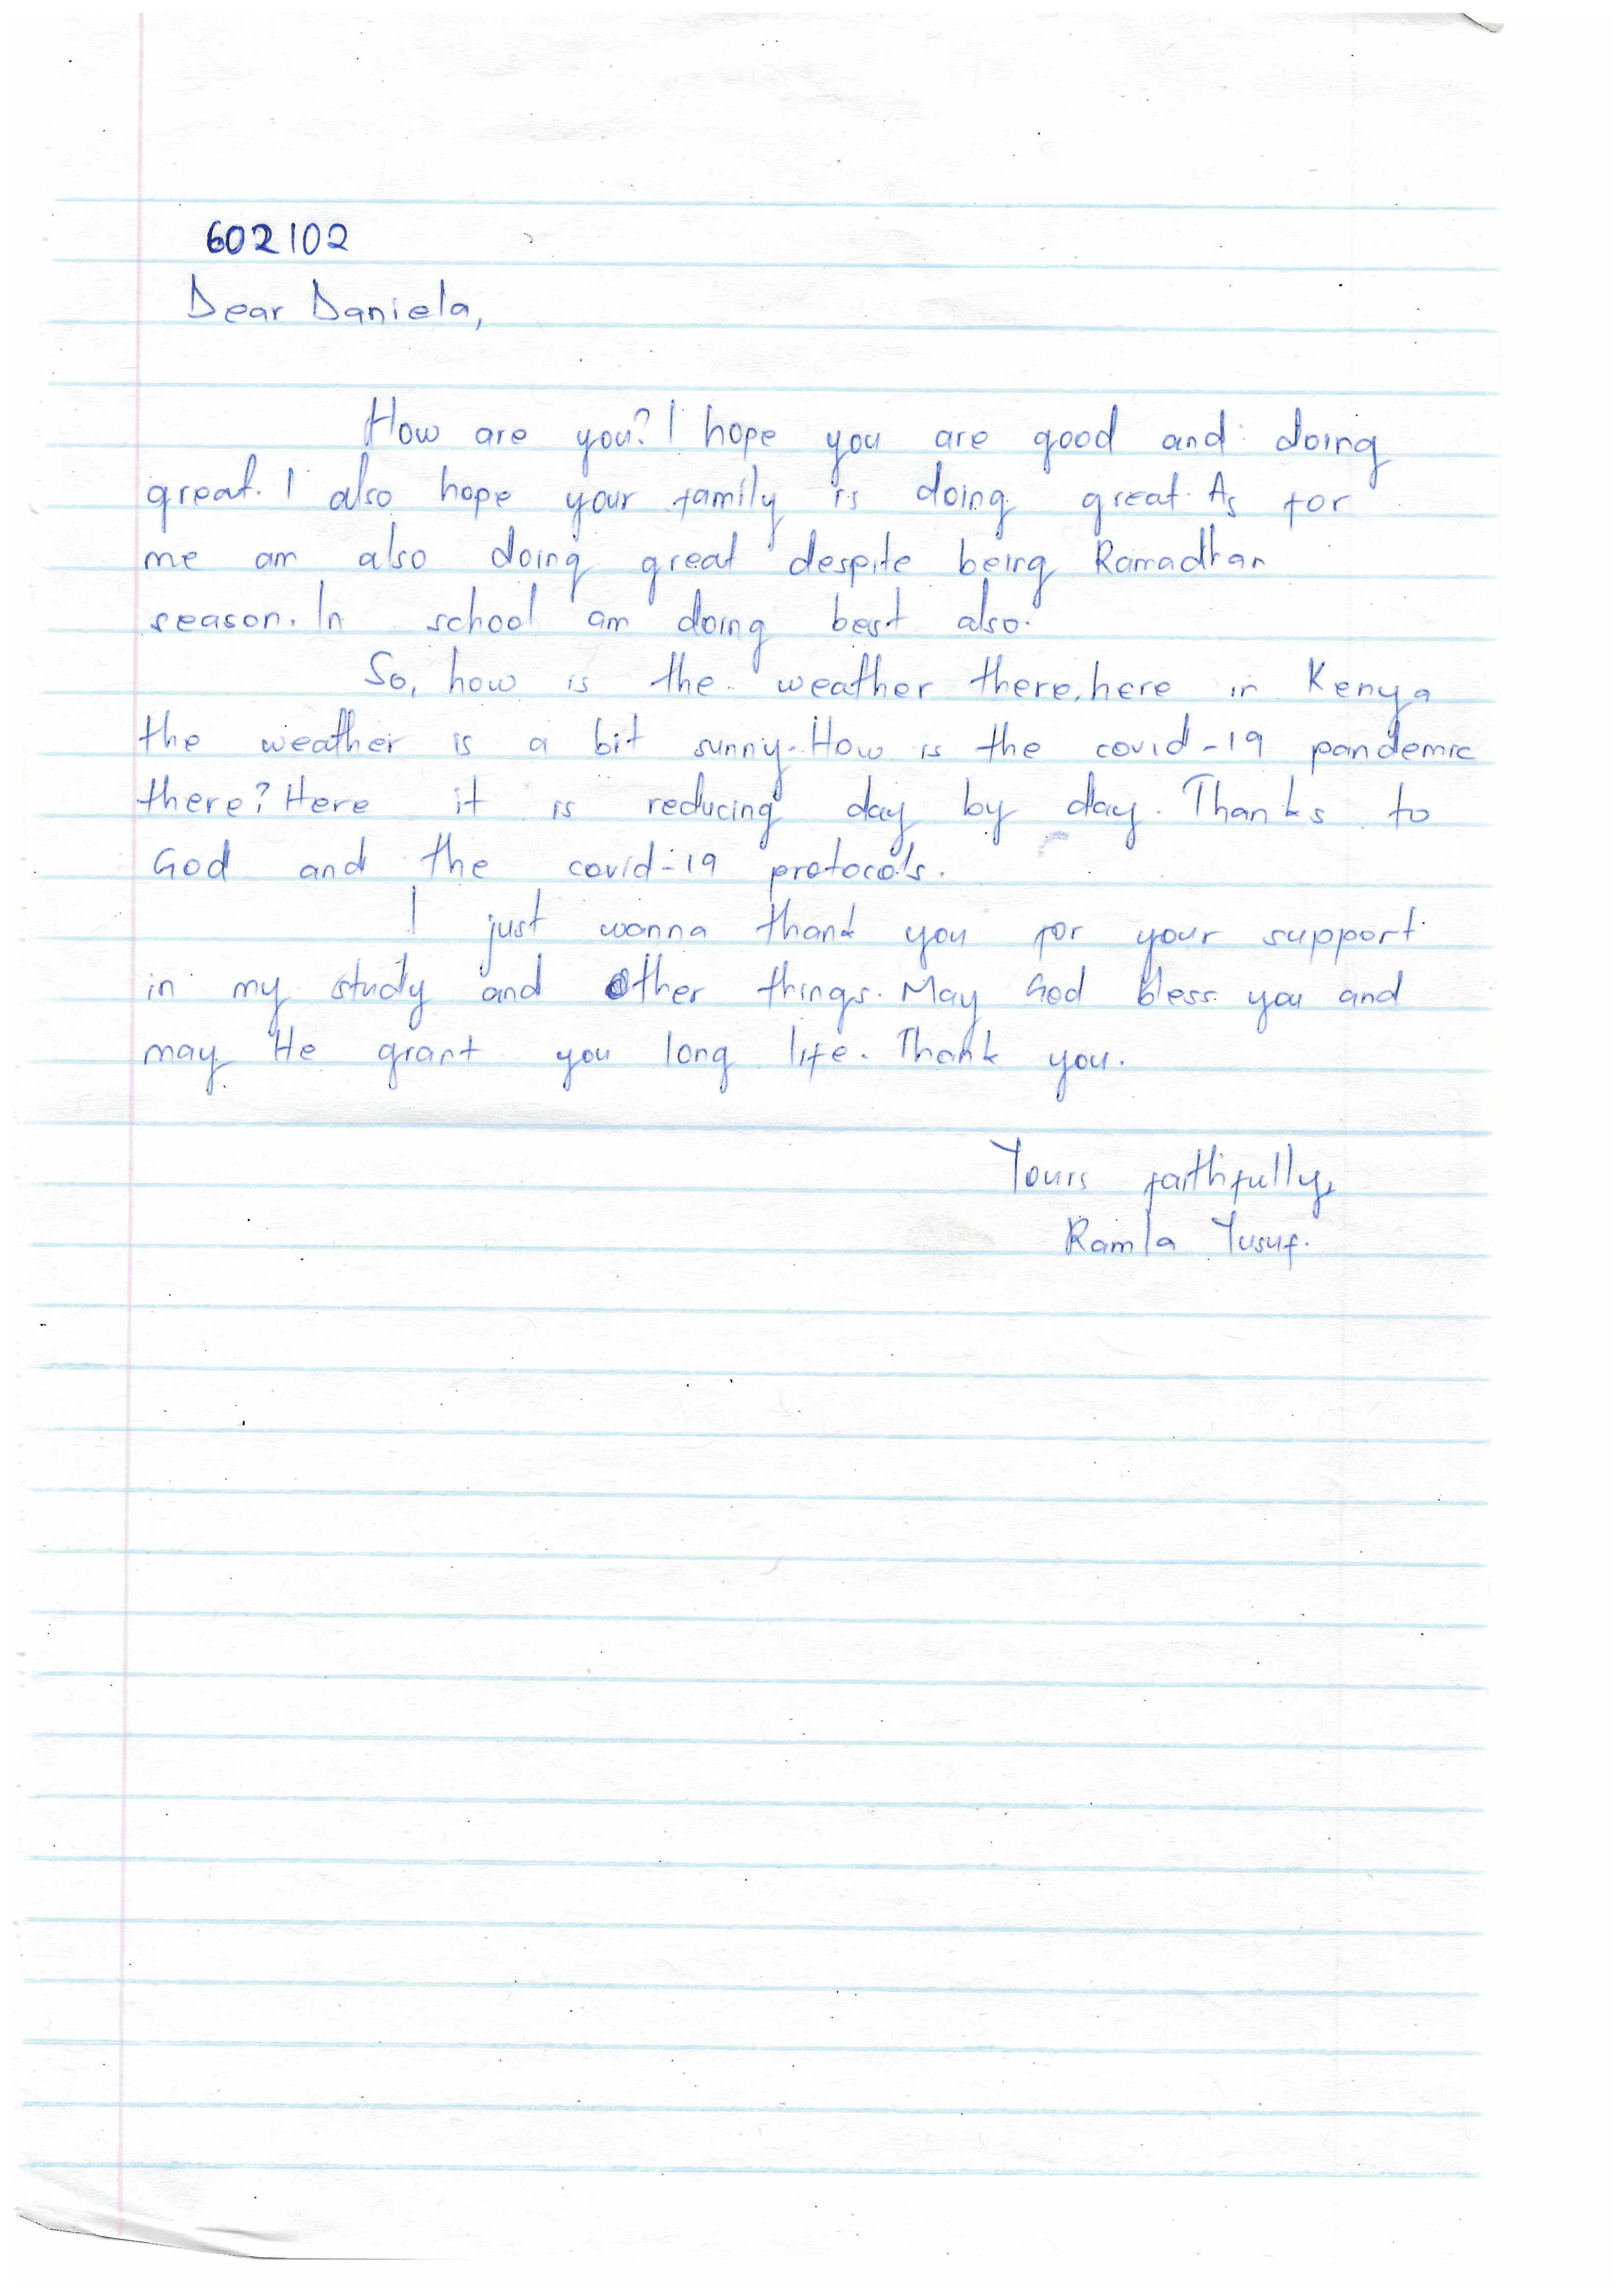 602102
Dear Daniela,
How are you? I hope you are good and doing
great. I also hope your family is doing great. As for
me am also doing great despite being Ramadhan
season. In school am doing best also.
So, how is the weather there, here in Kenya
the weather is a bit sunny. How is the covid-19 pandemic
there? Here it is reducing day by day. Thanks to
God and the covid-19 protocols.
I just wanna thank you for your support
in my study and other things. May God bless you and
may He grant you long life. Thank you.
Yours faithfully,
Ramla Yusuf.